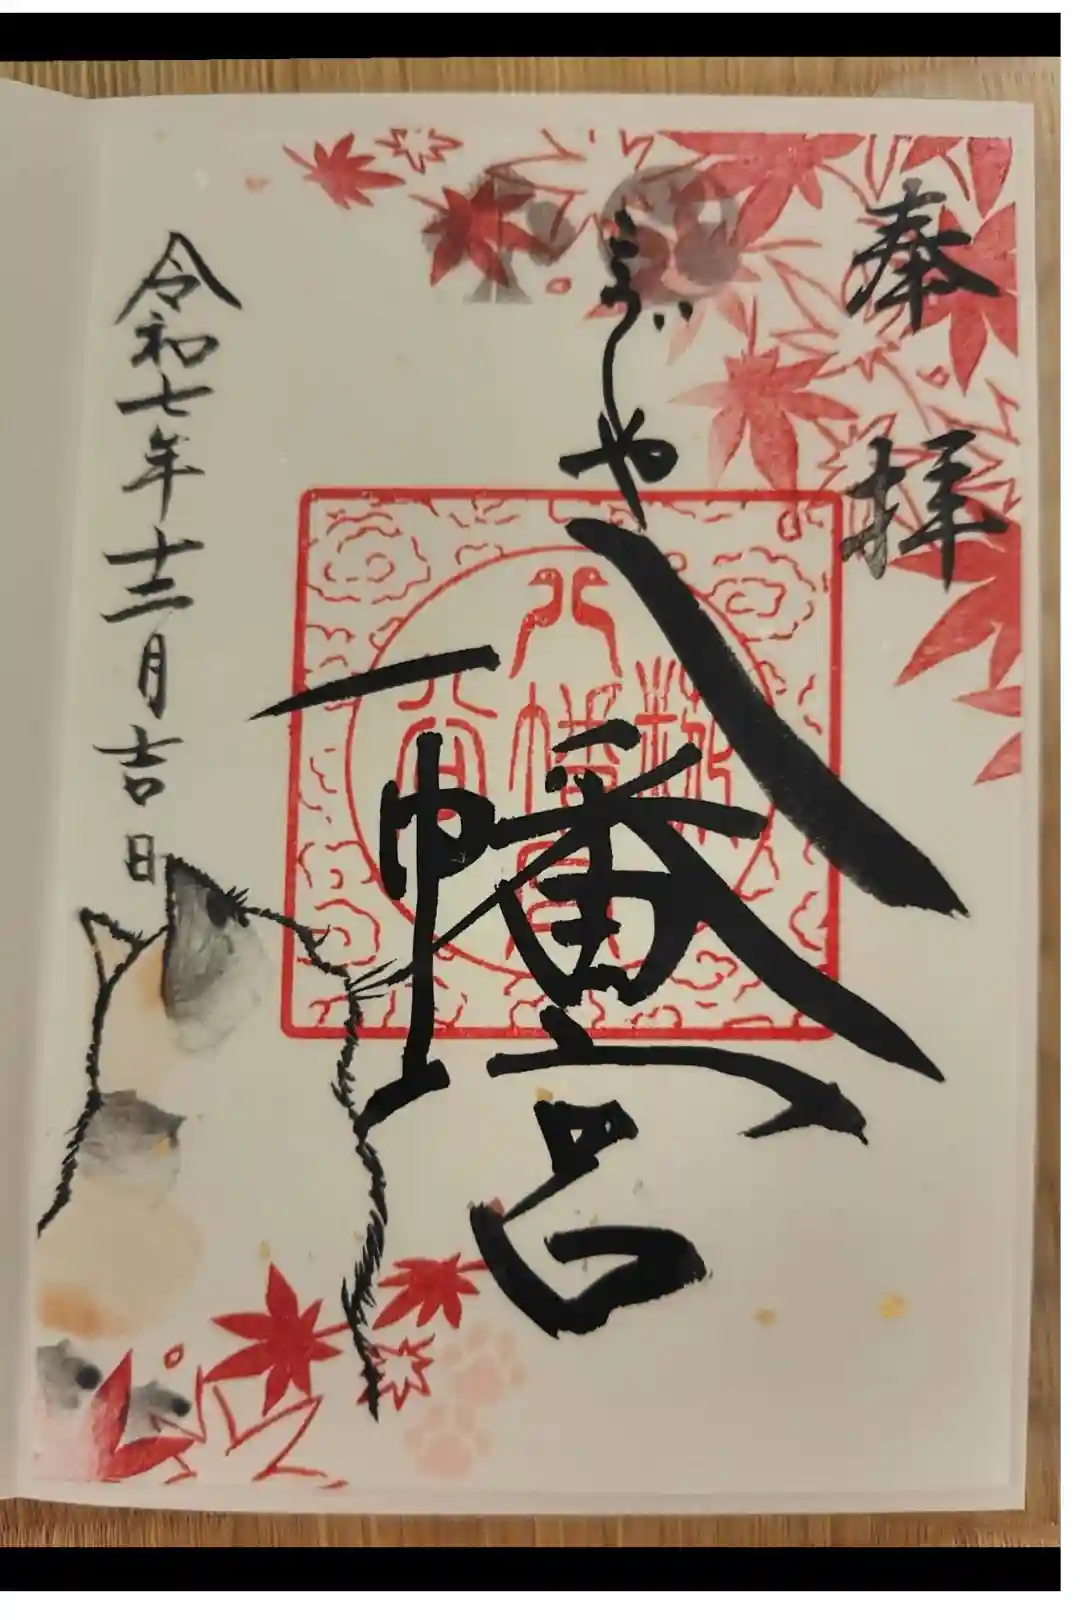 奉拝
こうじや
八幡宮
令和七年十二月吉日